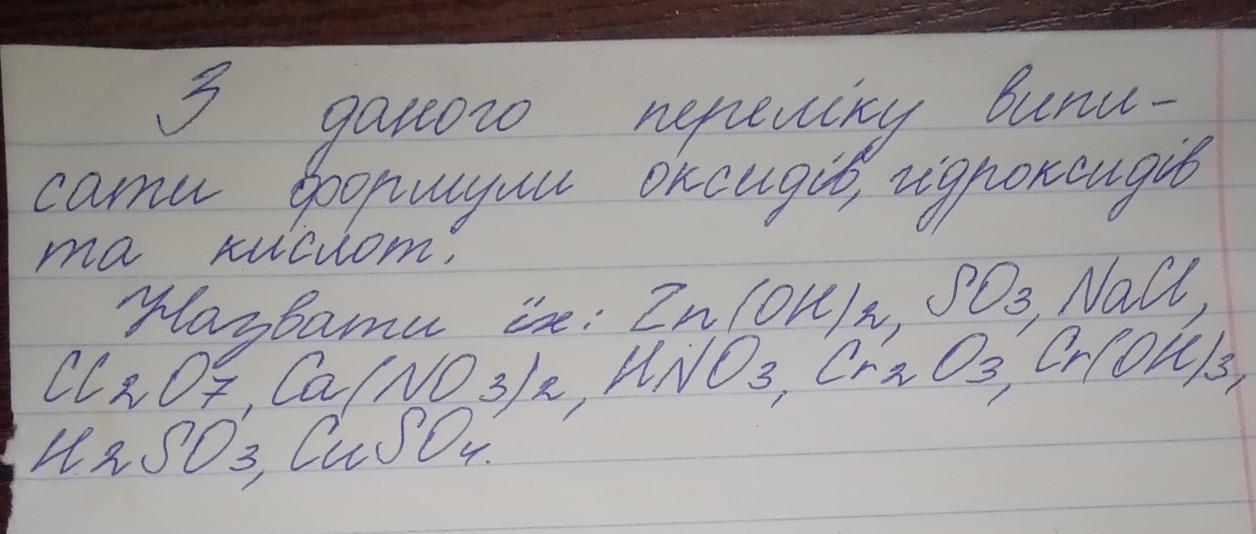 З даного переліку випи-
сати формули оксидів, гідроксидів
та кислот.
Назвати їх: Zn(OH)2, SO3, NaCl,
Cl2O7, Ca(NO3)2, HNO3, Cr2O3, Cr(OH)3,
H2SO3, CuSO4.